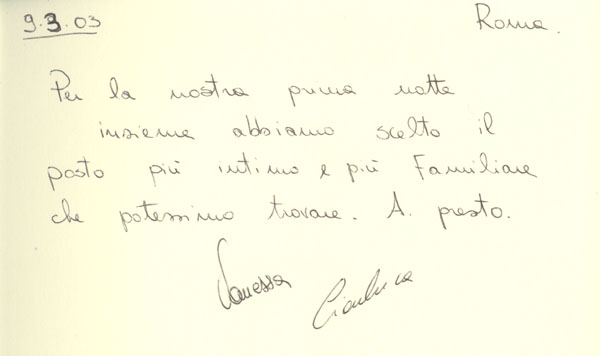 9.3.03 Roma.
Per la nostra prima notte
insieme abbiamo scelto il
posto più intimo e più Familiare
che potessimo trovare. A. presto.
Vanessa Gianluca